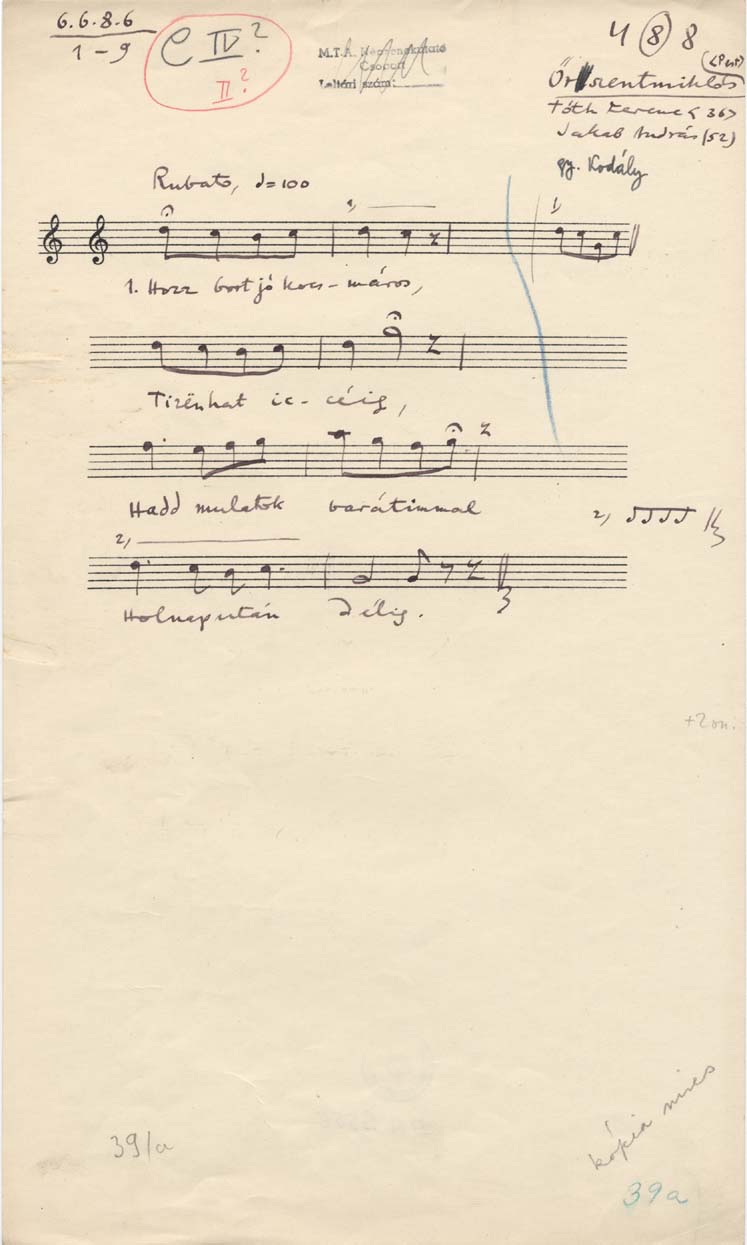 6.6.8.6
1-9
C IV?
II?
M.T.A. Népzenekutató
Csoport
Leltári szám:
4 8 8
(Pest)
Őrszentmiklós
Tóth Ferenc (36)
Jakab András (52)
gy. Kodály
Rubato, =100
1,
1,
1. Hozz bort jó kocs-máros,
Tizënhat ic-céig,
Hadd mulatok barátimmal
2,
2,
Holnapután délig.
+2 on.
kópia nincs
39/a
39a